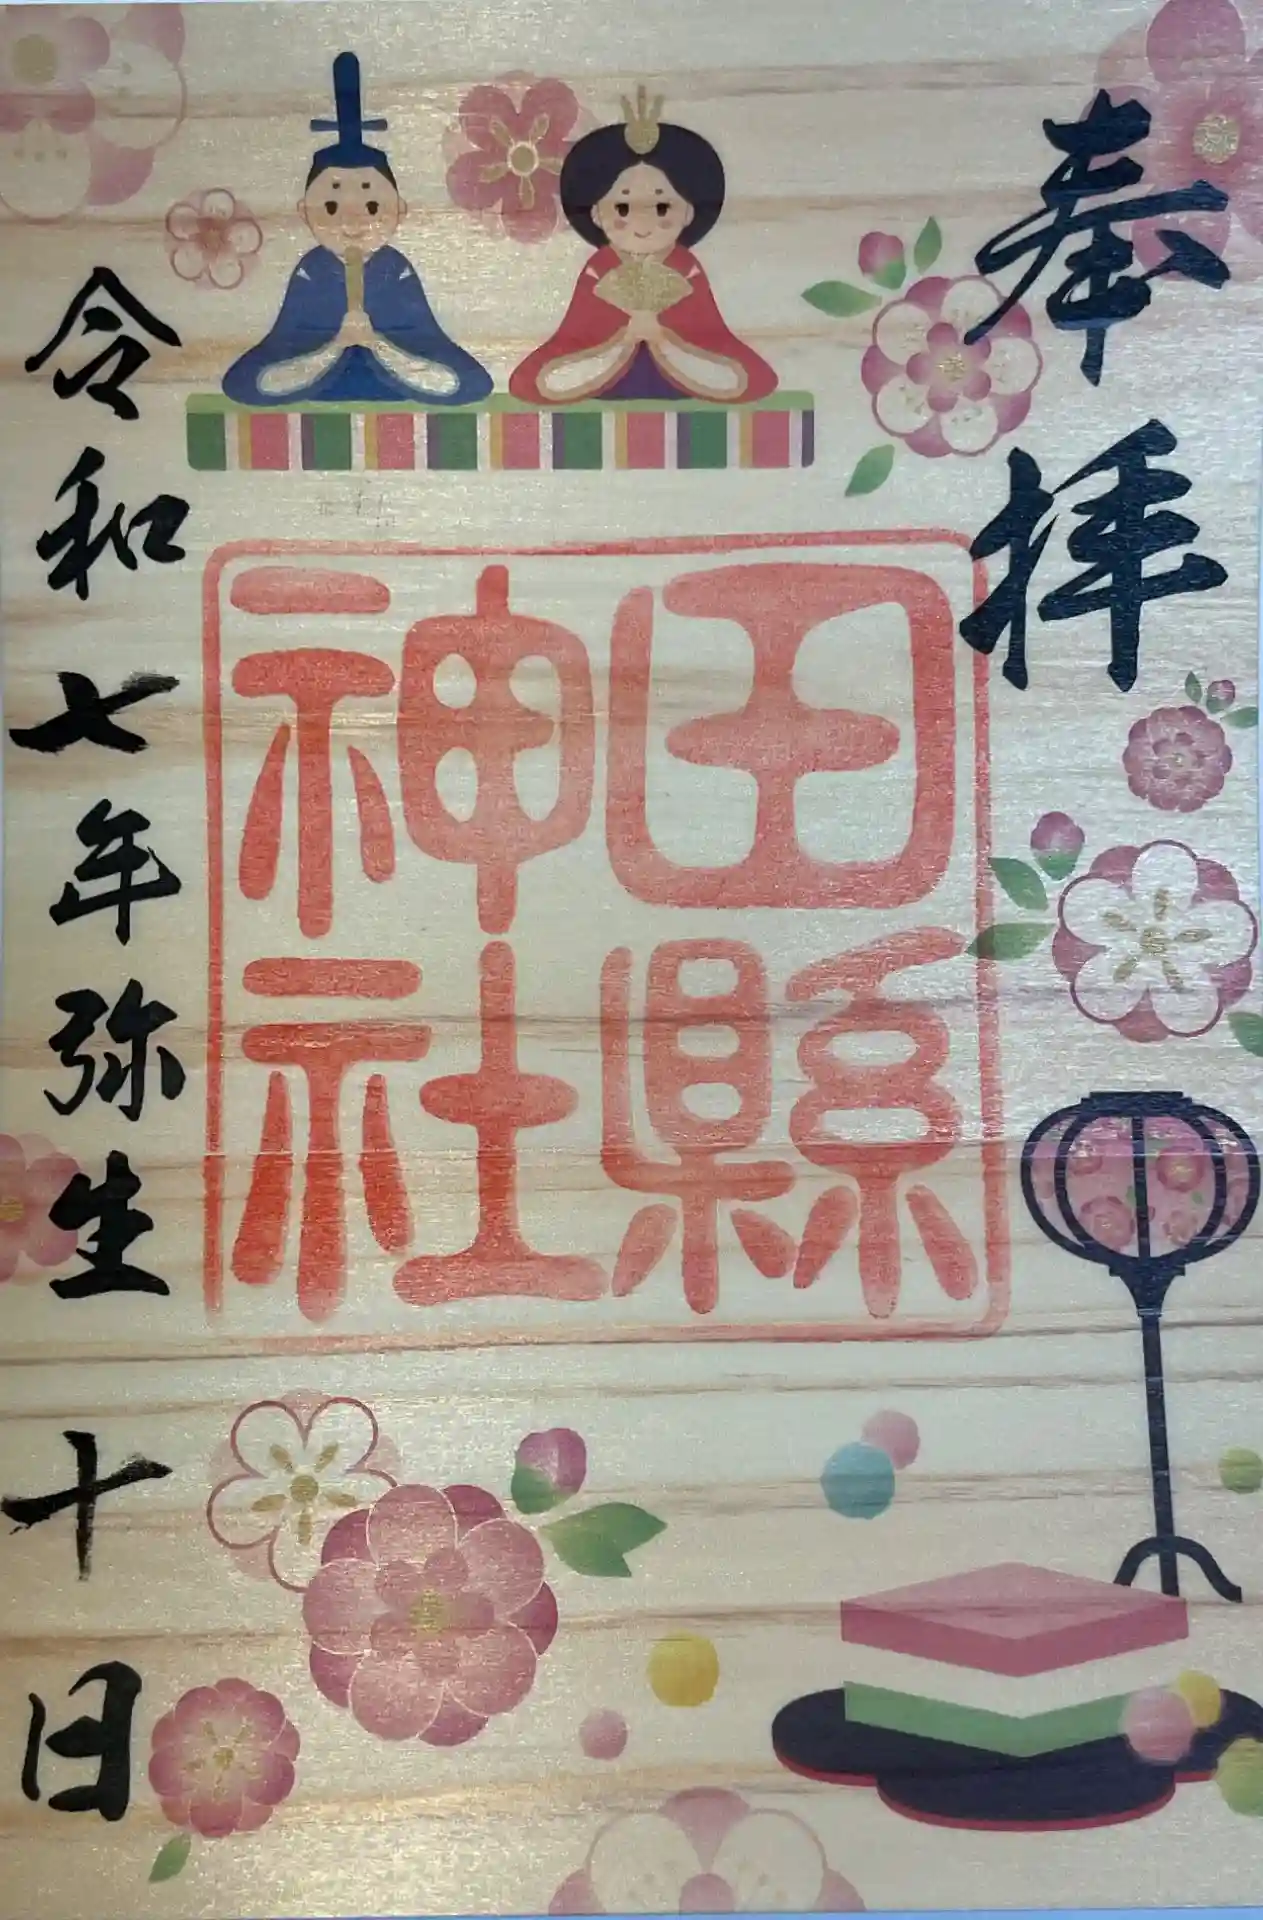 奉拝
田縣神社
令和七年弥生十日